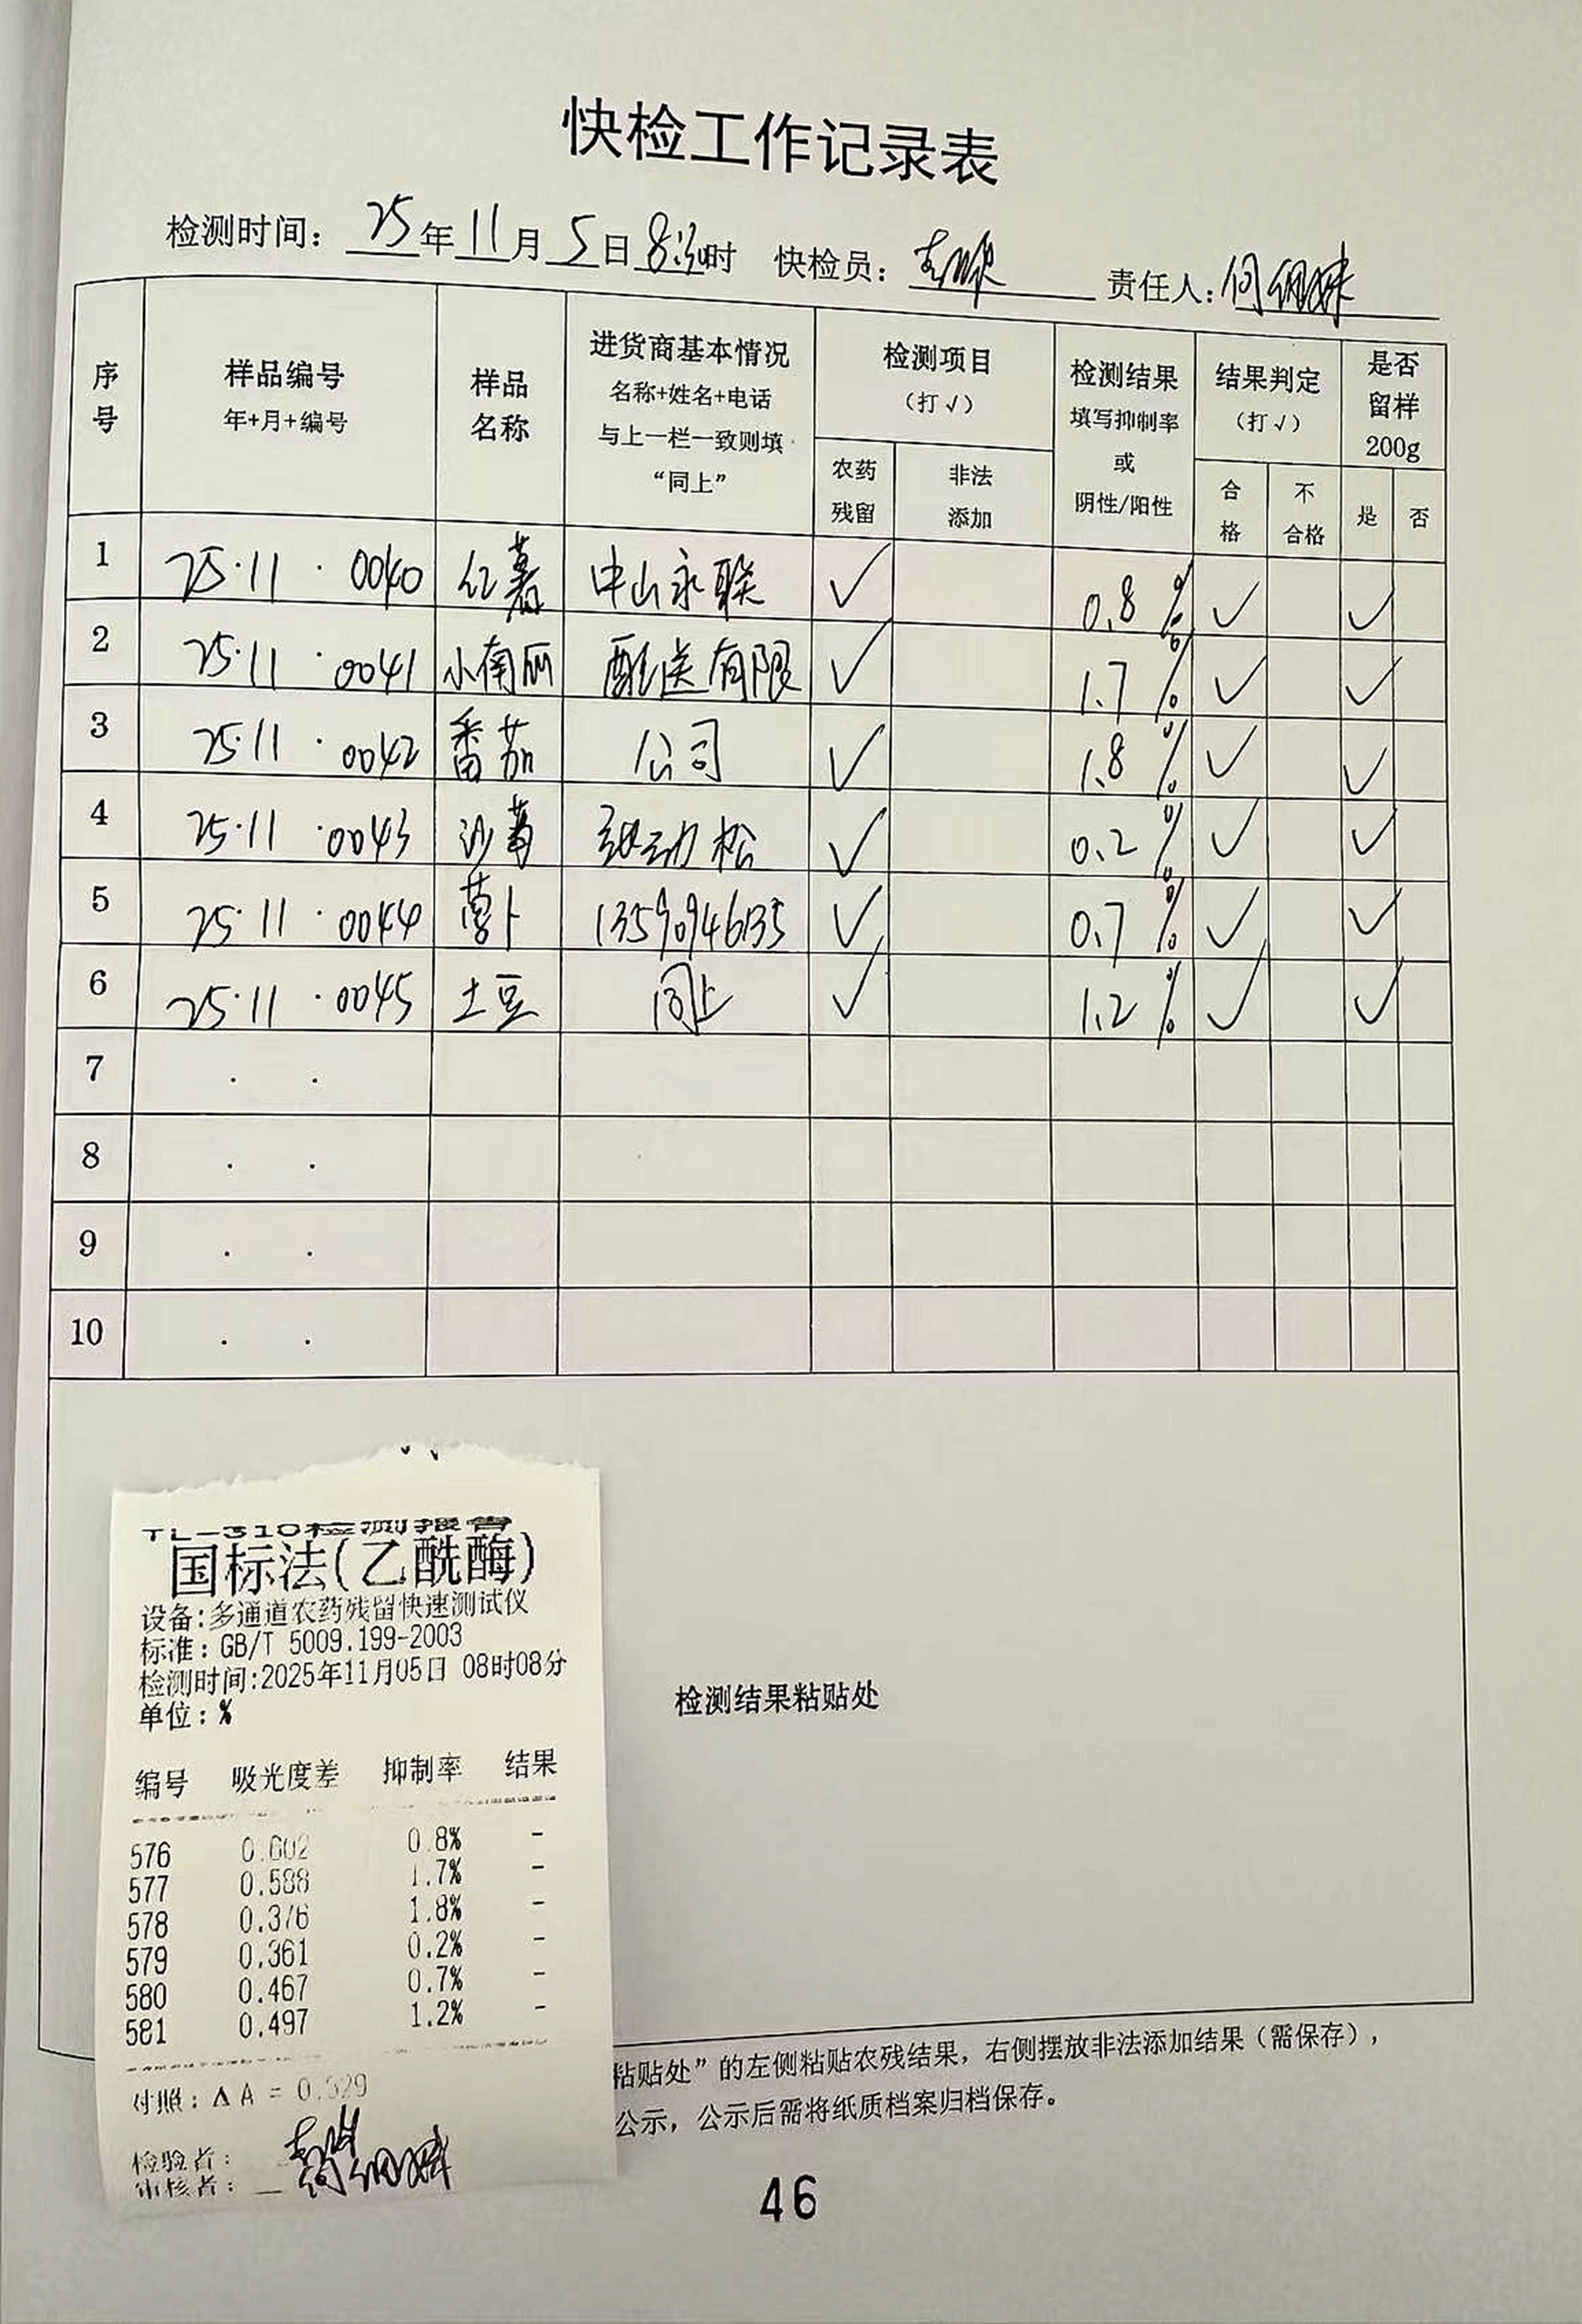 快检工作记录表
检测时间: 25年11月5日 时 快检员: 责任人: 何
序号 样品编号 年+月+编号 样品名称 进货商基本情况 名称+姓名+电话 与上一栏一致则填“同上” 检测项目 (打√) 农药残留 非法添加 检测结果 填写抑制率 或 阴性/阳性 结果判定 (打√) 合格 不合格 是否留样 200g 是 否
1 25·11·0040 红薯 中山永联 √ 0.8% √ √
2 25·11·0041 小南瓜 配送有限 √ 1.7% √ √
3 25·11·0042 番茄 公司 √ 1.8% √ √
4 25·11·0043 沙葛 松 √ 0.2% √ √
5 25·11·0044 萝卜 √ 0.7% √ √
6 25·11·0045 土豆 同上 √ 1.2% √ √
7 . .
8 . .
9 . .
10 . .
检测结果粘贴处
TL-310检测报告
国标法(乙酰酶)
设备:多通道农药残留快速测试仪
标准: GB/T 5009.199-2003
检测时间:2025年11月05日 08时08分
单位: %
编号 吸光度差 抑制率 结果
576 0.602 0.8% -
577 0.588 1.7% -
578 0.376 1.8% -
579 0.361 0.2% -
580 0.467 0.7% -
581 0.497 1.2% -
对照: ΔA =
检验者:
审核者:
粘贴处”的左侧粘贴农残结果，右侧摆放非法添加结果（需保存），
公示，公示后需将纸质档案归档保存。
46